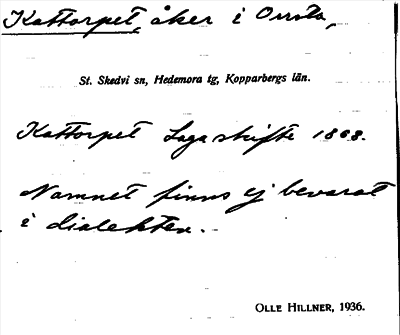 Kattorpet, åker i Orrsta,
St. Skedvi sn, Hedemora tg, Kopparbergs län.
Kattorpet Laga skifte 1868.
Namnet finns ej bevarat
i dialekten.
OLLE HILLNER, 1936.